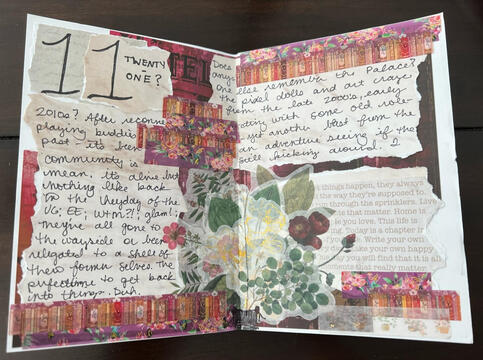 11
TWENTY
- ONE?
TEL
Does
any
one else remember the Palace?
the pixel dolls and art craze
from the late 2000's, early
2010s? After reconne
cting with some old role-
playing buddies
yet another blast from the
past its been
an adventure seeing if the
community is
still kicking around. I
mean its alive but
nothing like back
in the heyday of the
VG; EE; WTM?!; glam;
They're all gone to
the wayside or been
relegated to a shell of
their former selves. The
perfect time to get back
into things. Duh.
things happen, they always
the way they're supposed to.
through the sprinklers. Live
te that matter. Home is
le you love. This life is
Today is a chapter
Write your own
ke your own happy
ay you will find that it is all
oments that really matter.